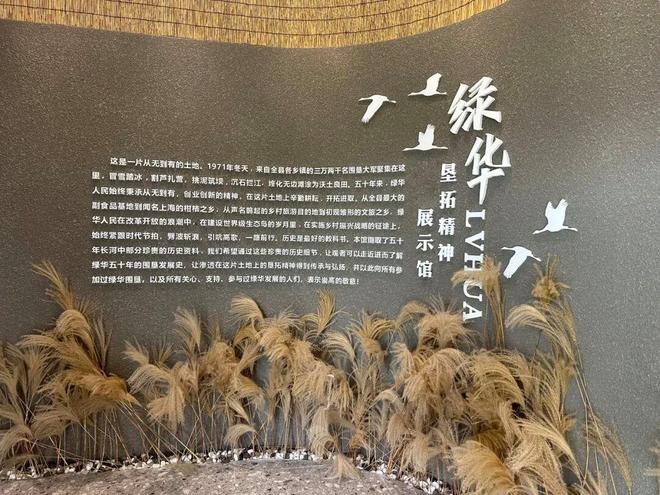 绿华
LVHUA
垦拓精神
展示馆
这是一片从无到有的土地。1971年冬天，来自全县各乡镇的三万两千名围垦大军聚集在这
里，冒雪踏冰，割芦扎营，挑泥筑坝，沉石拦江，终化无边滩涂为沃土良田。五十年来，绿华
人民始终秉承从无到有，创业创新的精神，在这片土地上辛勤耕耘，开拓进取，从全县最大的
副食品基地到闻名上海的柑桔之乡，从声名鹊起的乡村旅游目的地到初现雏形的文旅之乡，绿
华人民在改革开放的浪潮中，在建设世界级生态岛的岁月里，在实施乡村振兴战略的征途上，
始终紧跟时代节拍，劈波斩浪，引吭高歌，一路前行。历史是最好的教科书。本馆撷取了五十
年长河中部分珍贵的历史资料，我们希望通过这些珍贵的历史细节，让观者可以走近进而了解
绿华五十年的围垦发展史，让渗透在这片土地上的垦拓精神得到传承与弘扬，并以此向所有参
加过绿华围垦，以及所有关心、支持、参与过绿华发展的人们，表示崇高的敬意！